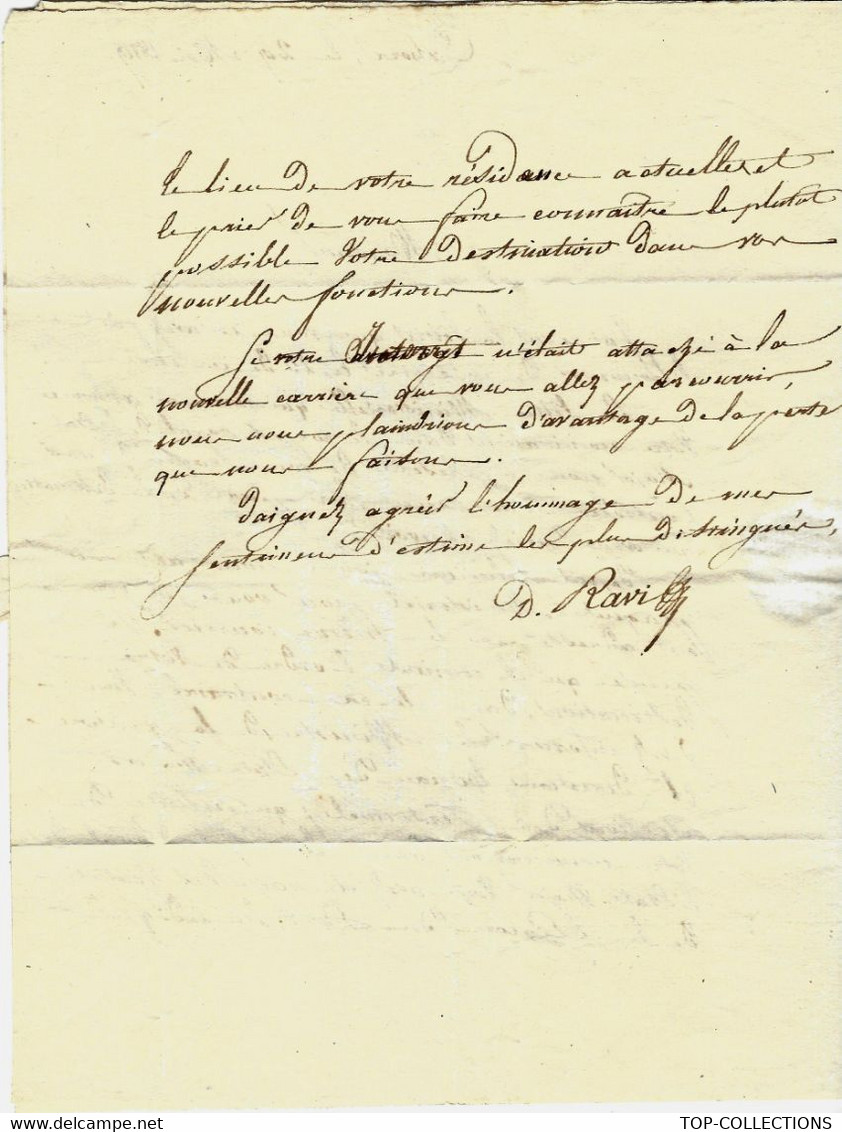 le lieu de votre résidence actuelle, et
le prier de vous faire connaître le plutot
possible votre destination dans vos
nouvelles fonctions.
Si votre n'était attaché à la
nouvelle carrière que vous allez parcourrir,
nous nous plaindrions d'avantage de la perte
que nous faisons.
Daignez agréer l'hommage de mes
sentimens d'estime les plus distingués,
D. Ravi
TOP-COLLECTIONS